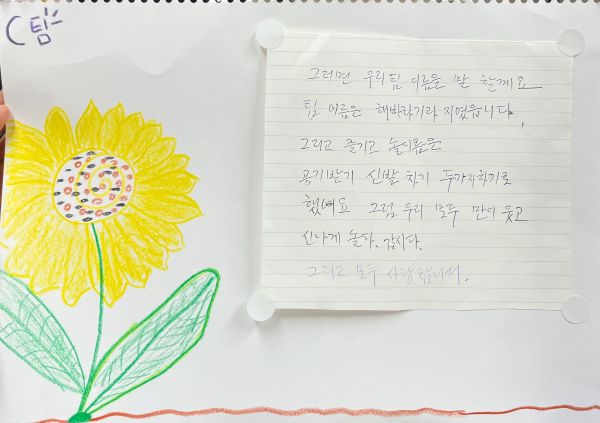 C팀
그러면 우리팀 이름을 말 할게요
팀 이름은 해바라기라 지였읍니다.
그리고 즐기고 놀이름은
공기받기 신발 차기 두가지하기로
했어요 그럼 우리 모두 만이 웃고
신나게 놀다. 갑시다.
그리고 모두 사랑합니다.